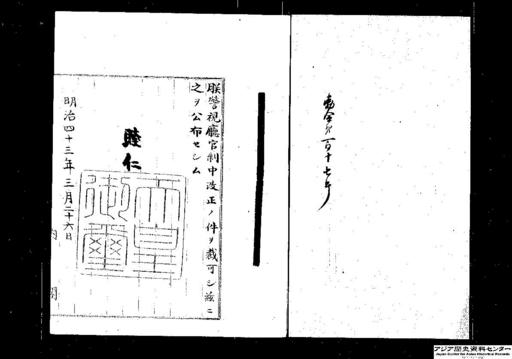 勅令第百十七号
朕警視廳官制中改正ノ件ヲ裁可シ茲ニ
之ヲ公布セシム
睦仁
天皇御璽
明治四十三年三月二十六日
内閣
アジア歴史資料センター
Japan Center for Asian Historical Records